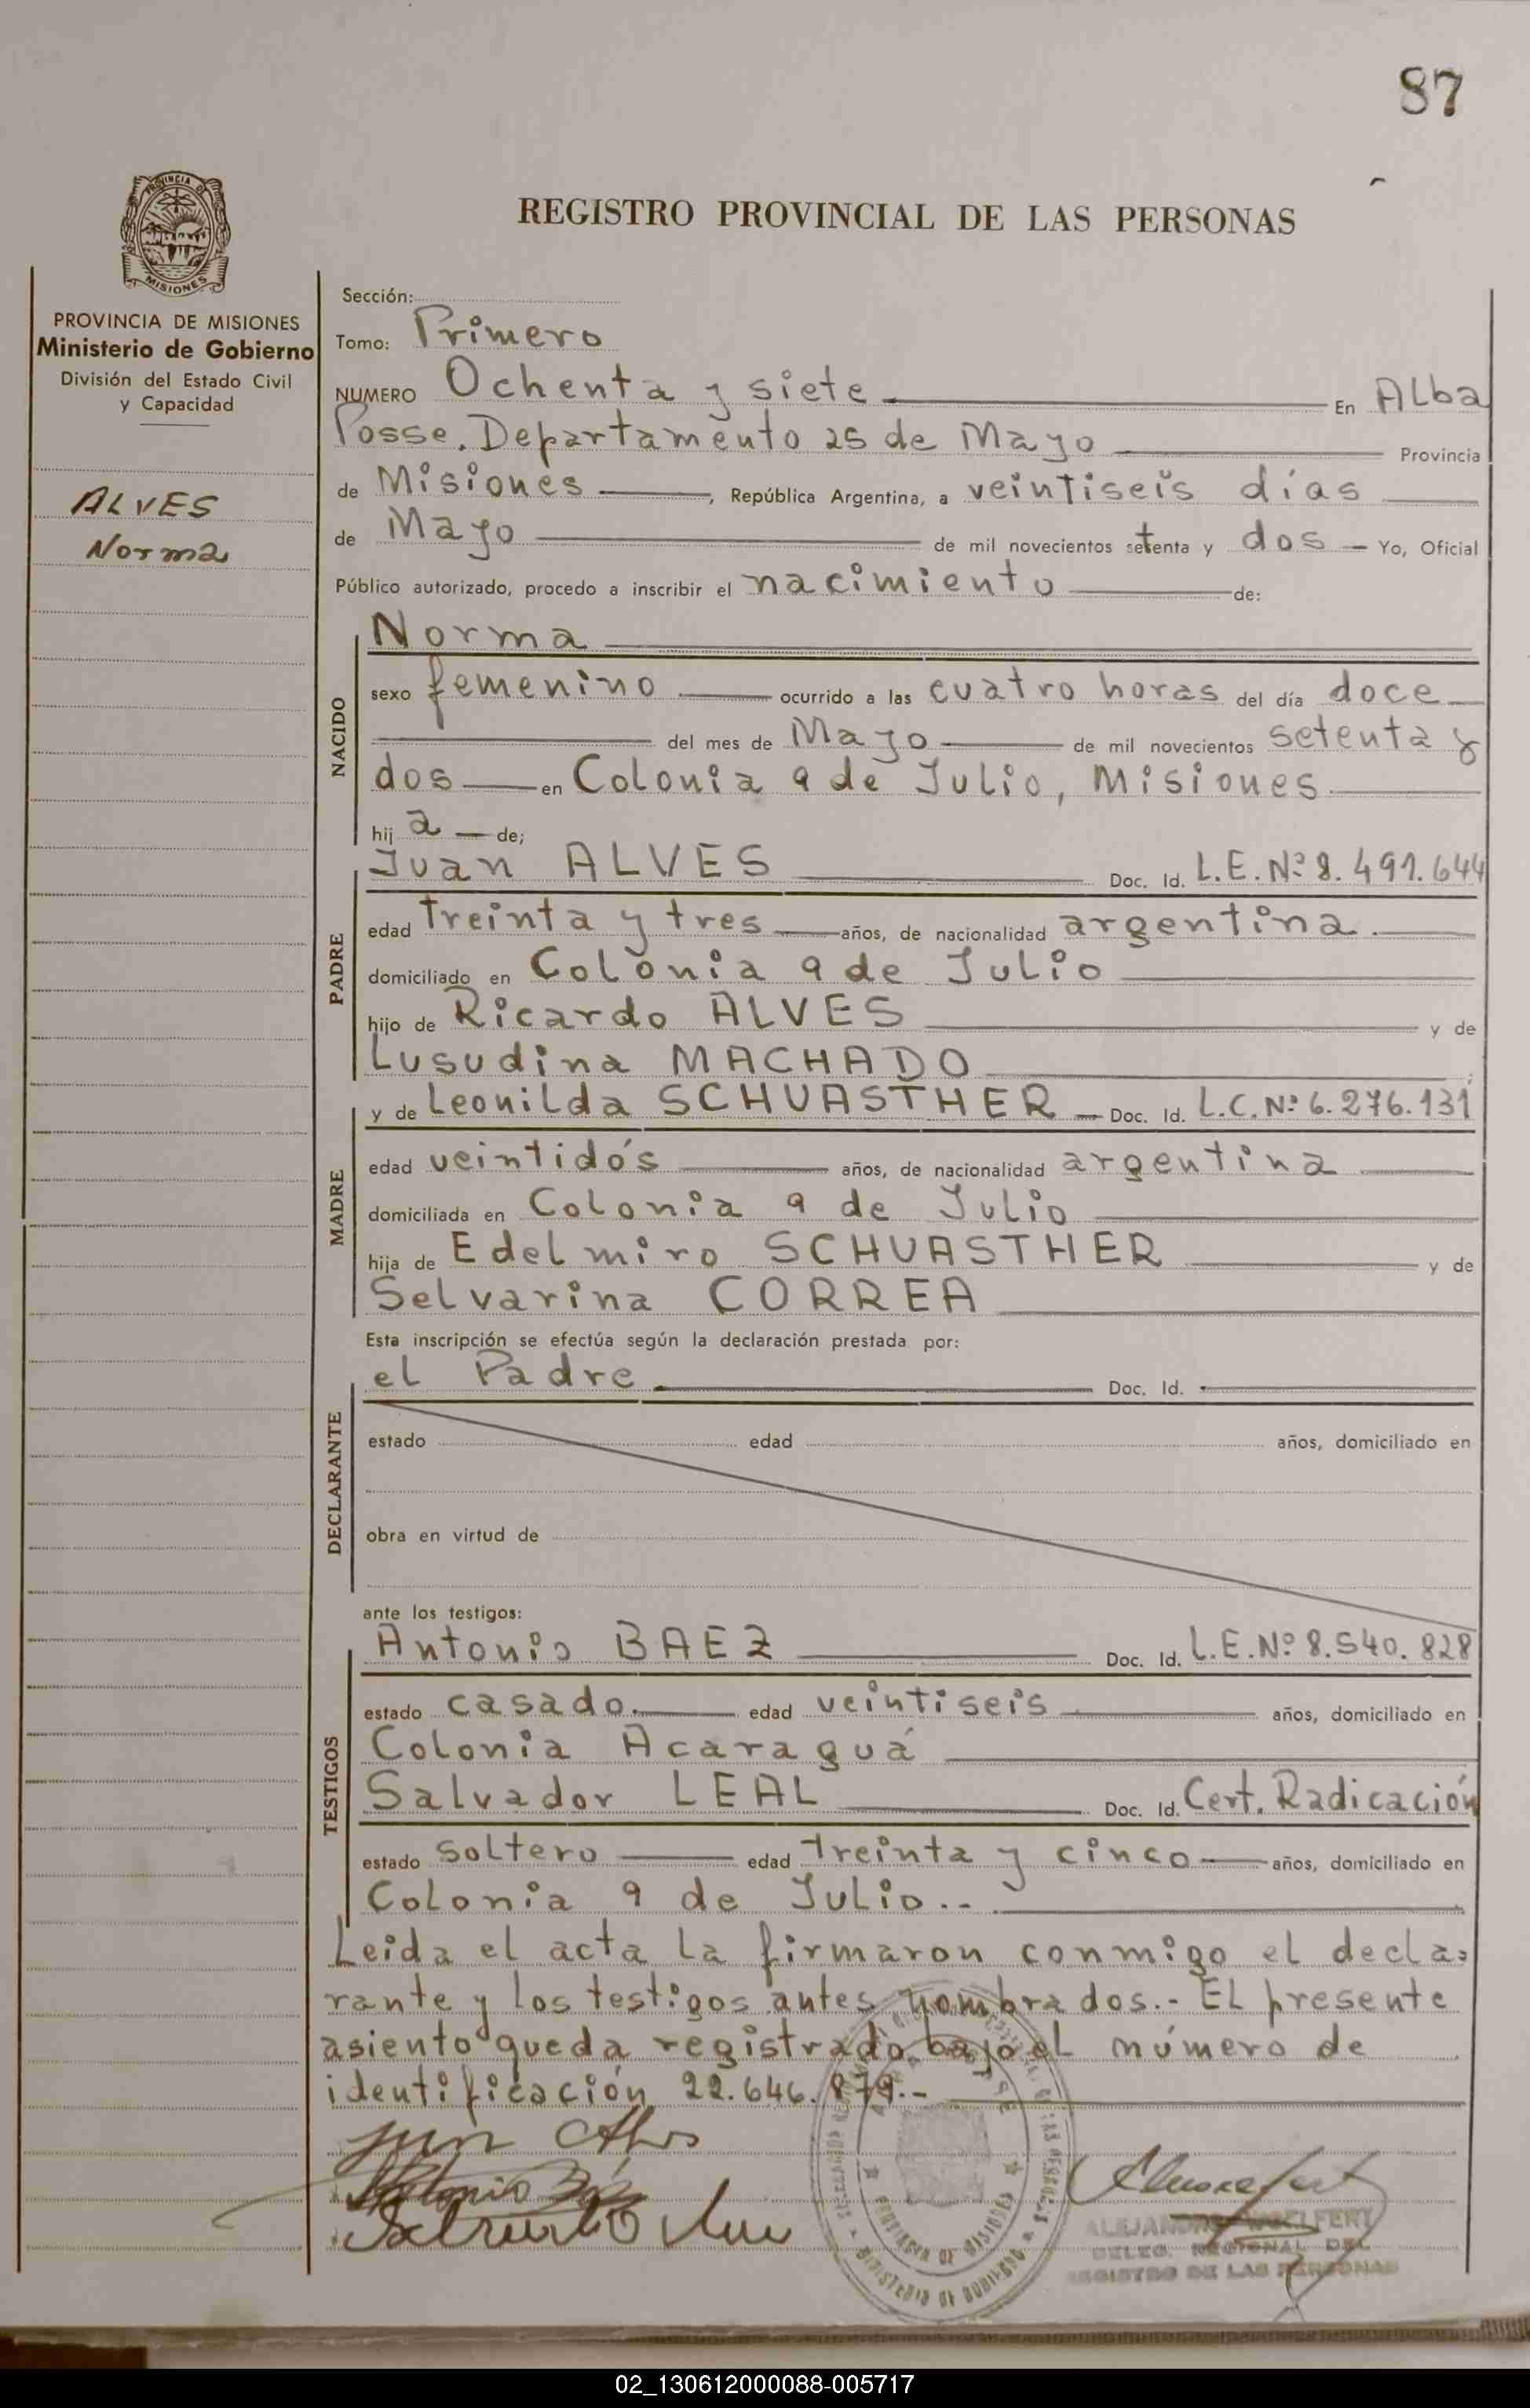 87
REGISTRO PROVINCIAL DE LAS PERSONAS
PROVINCIA DE MISIONES
Ministerio de Gobierno
División del Estado Civil
y Capacidad
ALVES
Norma
Sección:
Tomo: Primero
NUMERO Ochenta y siete En Alba
Posse. Departamento 25 de Mayo Provincia
de Misiones, República Argentina, a veintiseis días
de Mayo de mil novecientos setenta y dos Yo, Oficial
Público autorizado, procedo a inscribir el nacimiento de:
NACIDO
Norma
sexo femenino ocurrido a las cuatro horas del día doce
del mes de Mayo de mil novecientos setenta y
dos en Colonia 9 de Julio, Misiones
hija de;
PADRE
Juan ALVES Doc. Id. L.E. Nº 8.491.644
edad treinta y tres años, de nacionalidad argentina.
domiciliado en Colonia 9 de Julio
hijo de Ricardo ALVES y de
Lusudina MACHADO
MADRE
y de Leonilda SCHUASTHER Doc. Id. L.C. Nº 6.276.131
edad veintidós años, de nacionalidad argentina
domiciliada en Colonia 9 de Julio
hija de Edelmiro SCHUASTHER y de
Selvarina CORREA
Esta inscripción se efectúa según la declaración prestada por:
DECLARANTE
el Padre Doc. Id.
estado edad años, domiciliado en
obra en virtud de
ante los testigos:
TESTIGOS
Antonio BAEZ Doc. Id. L.E. Nº 8.540.828
estado casado. edad veintiseis años, domiciliado en
Colonia Acaraguá
Salvador LEAL Doc. Id. Cert. Radicación
estado soltero edad treinta y cinco años, domiciliado en
Colonia 9 de Julio..
Leida el acta la firmaron conmigo el decla=
rante y los testigos antes nombrados.- El presente
asiento queda registrado bajo el número de
identificación 22.646.879.-
Antonio Báez
ALEJANDRO WOELFERT
DELEG. REGIONAL DEL
REGISTRO DE LAS PERSONAS
PROVINCIA DE MISIONES
MINISTERIO DE GOBIERNO
02_130612000088-005717